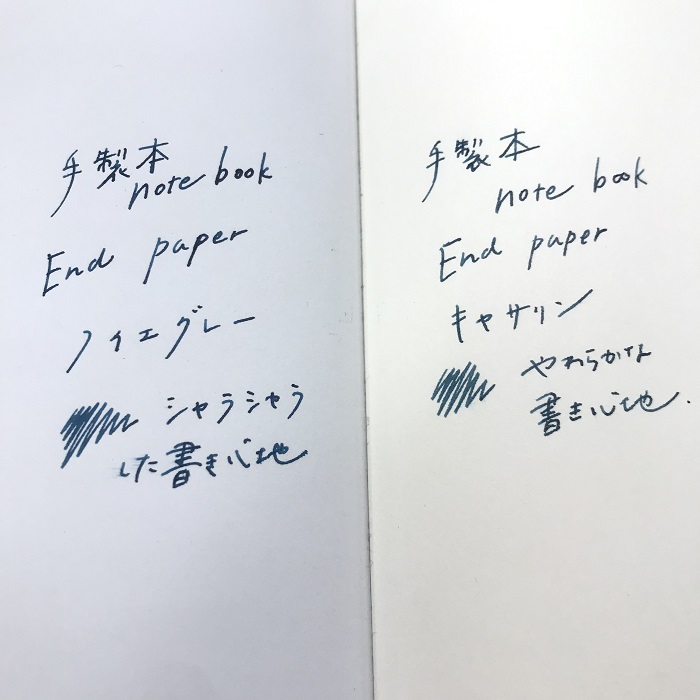 手製本
note book
End paper
ノイエグレー
シャラシャラ
した書き心地
手製本
note book
End paper
キャサリン
やわらかな
書き心地.